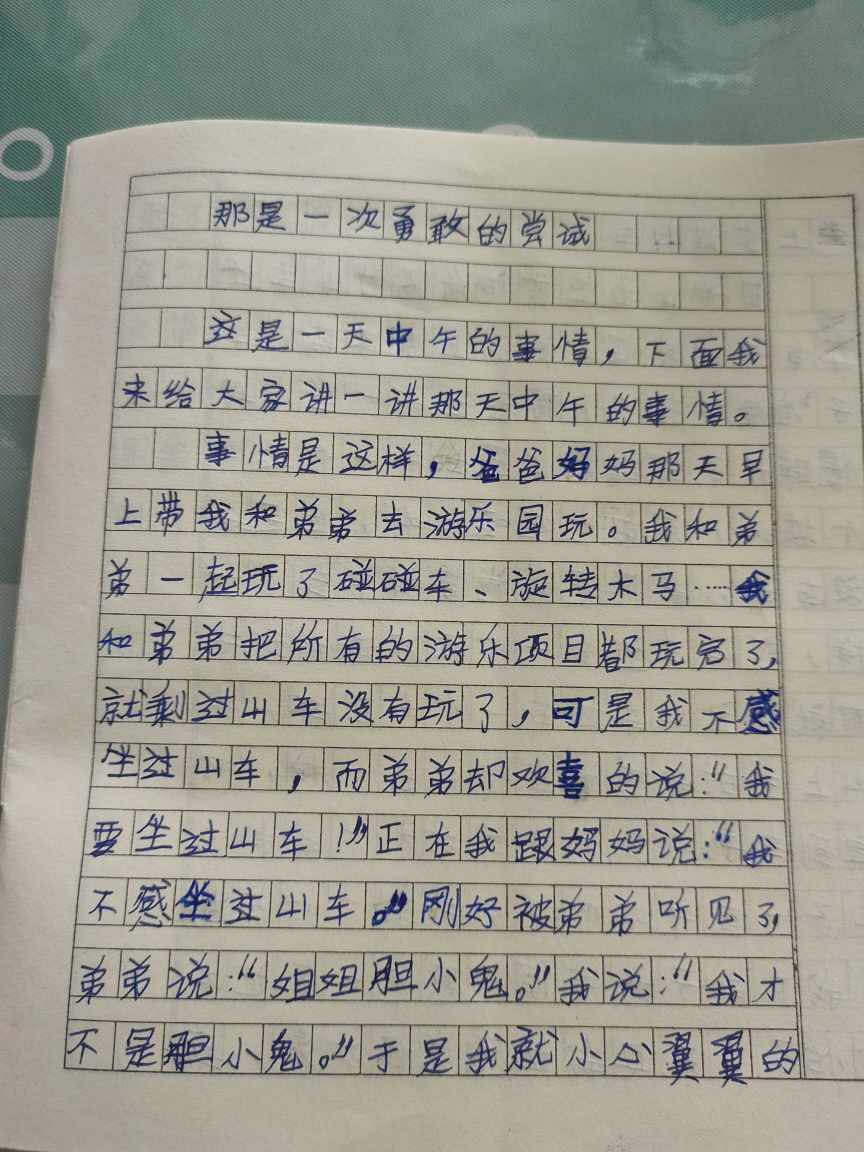 那是一次勇敢的尝试
这是一天中午的事情，下面我
来给大家讲一讲那天中午的事情。
事情是这样，爸爸妈妈那天早
上带我和弟弟去游乐园玩。我和弟
弟一起玩了碰碰车、旋转木马……我
和弟弟把所有的游乐项目都玩完了，
就剩过山车没有玩了，可是我不感
坐过山车，而弟弟却欢喜的说：“我
要坐过山车！”正在我跟妈妈说：“我
不感坐过山车。”刚好被弟弟听见了，
弟弟说：“姐姐胆小鬼。”我说：“我才
不是胆小鬼。”于是我就小心翼翼的